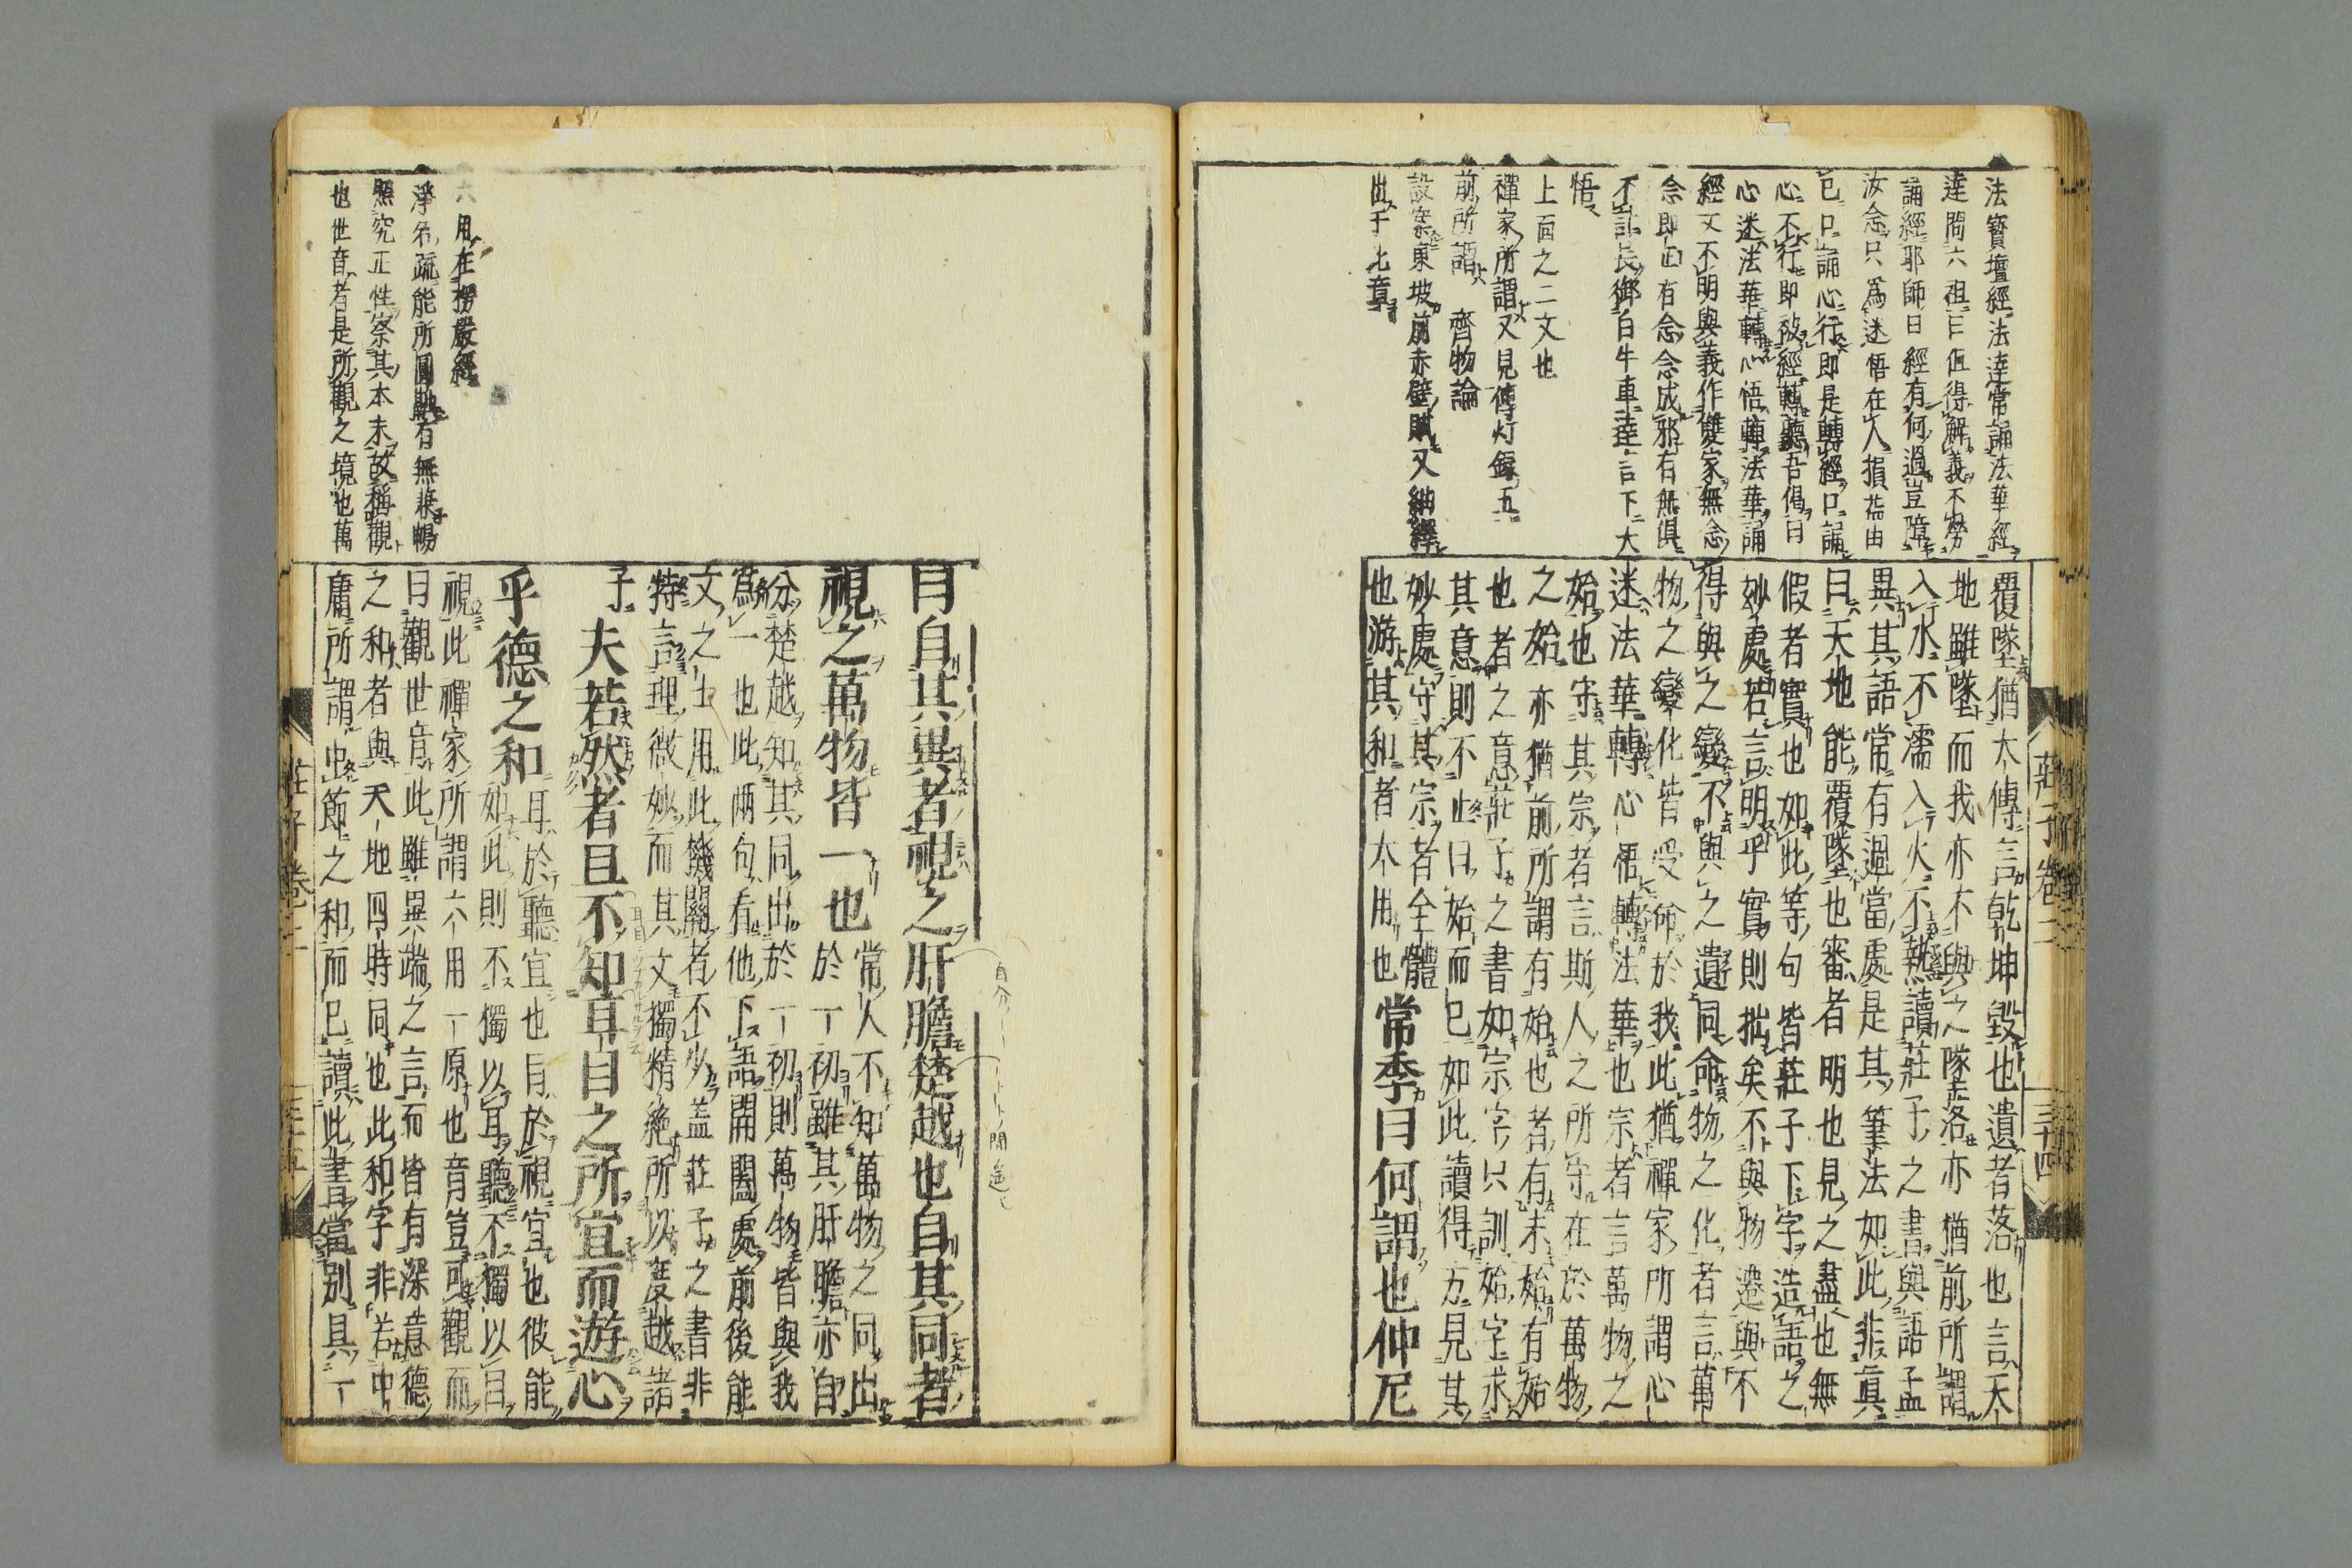 法寶壇經法達常誦法華經
達問六祖曰但得解義不勞
誦經耶師曰經有何過豈障
汝念只爲迷悟在人損益由
己口誦心行即是轉經口誦
心不行即被經轉聽吾偈曰
心迷法華轉心悟轉法華誦
經文不明與義作讐家無念
念即正有念念成邪有無俱
不計長御白牛車達言下大
悟
上面之二文也
禪家所謂又見傳灯録五
前所謂 齊物論
設案東坡前赤壁賦又納經
出于此章
覆墜猶太傅言乾坤毀也遺者落也言天
地雖墜而我亦不與之墜落亦猶前所謂
入水不濡入火不熱讀莊子之書與語孟
異其語常有過當處是其筆法如此非眞
曰天地能覆墜也審者明也見之盡也無
假者實也如此等句皆莊子下字造語之
妙處若言明乎實則拙矣不與物遷與不
得與之變不與之遺同命物之化者言萬
物之變化皆受命於我此猶禪家所謂心
迷法華轉心悟轉法華也宗者言萬物之
始也守其宗者言斯人之所守在於萬物
之始亦猶前所謂有始也者有未始有始
也者之意莊子之書如宗字只訓始字求
其意則不止曰始而已如此讀得方見其
妙處守其宗者全體
也游其和者大用也常季曰何謂也仲尼
莊子卷二
三十四
曰自其異者視之肝膽楚越也自其同者
視之萬物皆一也常人不知萬物之同出
於一初雖其肝膽亦自
分楚越知其同出於一初則萬物皆與我
爲一也此兩句看他下語開闔處前後能
文之士用此機關者不少蓋莊子之書非
特言理微妙而其文獨精絶所以度越諸
子夫若然者且不知耳目之所宜而遊心
乎德之和耳於聽宜也目於視宜也彼能
如此則不獨以耳聽不獨以目
視此禪家所謂六用一原也音豈可觀而
曰觀世音此雖異端之言而皆有深意德
之和者與天地四時同也此和字非若中
庸所謂中節之和而已讀此書當別具一
六用在楞嚴經
淨名疏能所圓融有無兼暢
照究正性察其本末故稱觀
也世音者是所觀之境也萬
莊子卷二
三十五